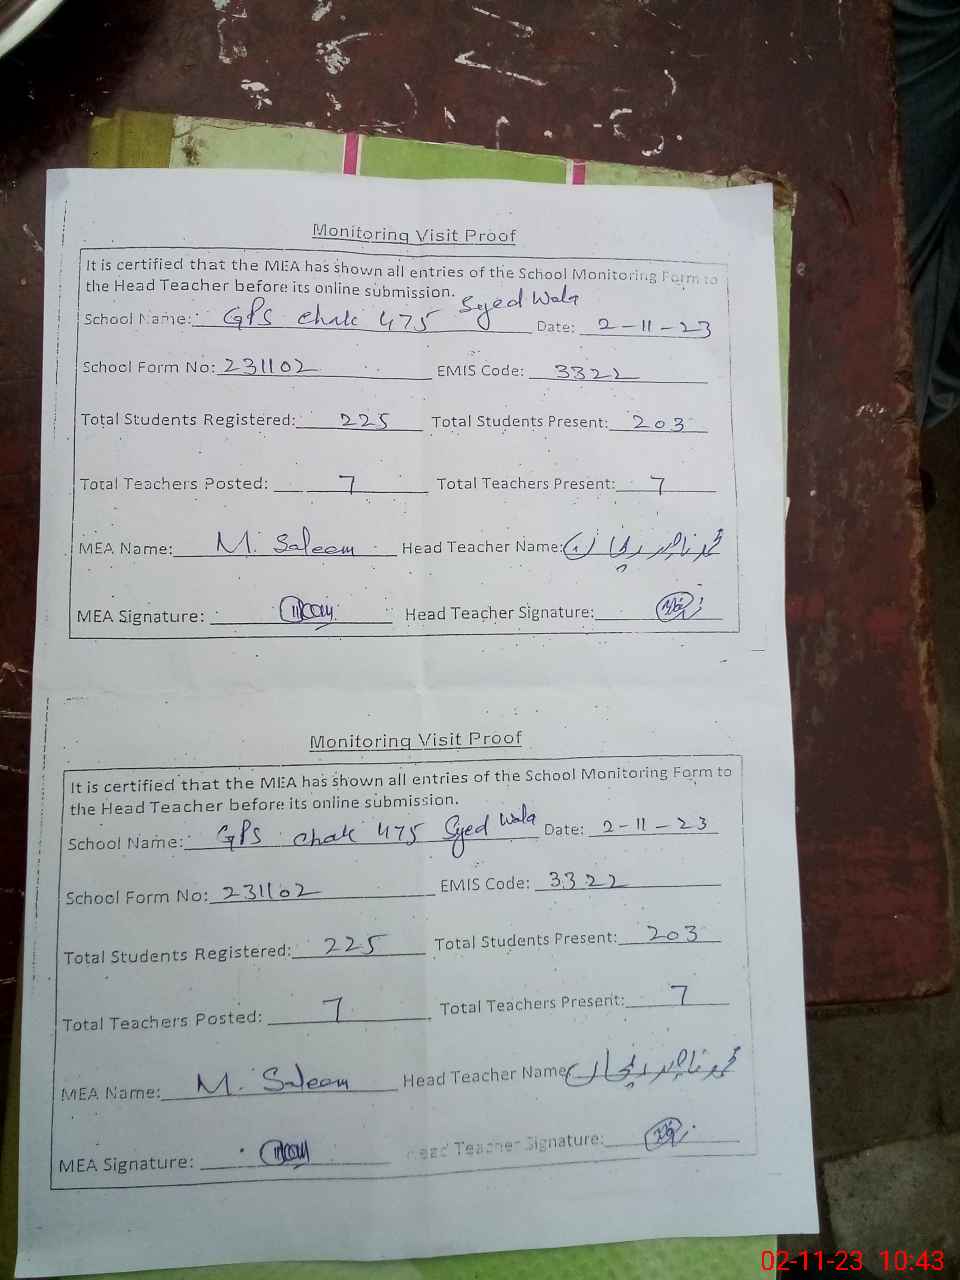 Monitoring Visit Proof
It is certified that the MEA has shown all entries of the School Monitoring Form to
the Head Teacher before its online submission.
School Name: GPS chak 475 Syed Wala Date: 2-11-23
School Form No: 231102 EMIS Code: 3322
Total Students Registered: 225 Total Students Present: 203
Total Teachers Posted: 7 Total Teachers Present: 7
MEA Name: M. Saleem Head Teacher Name: محمد ناصر
MEA Signature: Head Teacher Signature:
Monitoring Visit Proof
It is certified that the MEA has shown all entries of the School Monitoring Form to
the Head Teacher before its online submission.
School Name: GPS chak 475 Syed Wala Date: 2-11-23
School Form No: 231102 EMIS Code: 3322
Total Students Registered: 225 Total Students Present: 203
Total Teachers Posted: 7 Total Teachers Present: 7
MEA Name: M. Saleem Head Teacher Name محمد ناصر
MEA Signature: Head Teacher Signature:
02-11-23 10:43